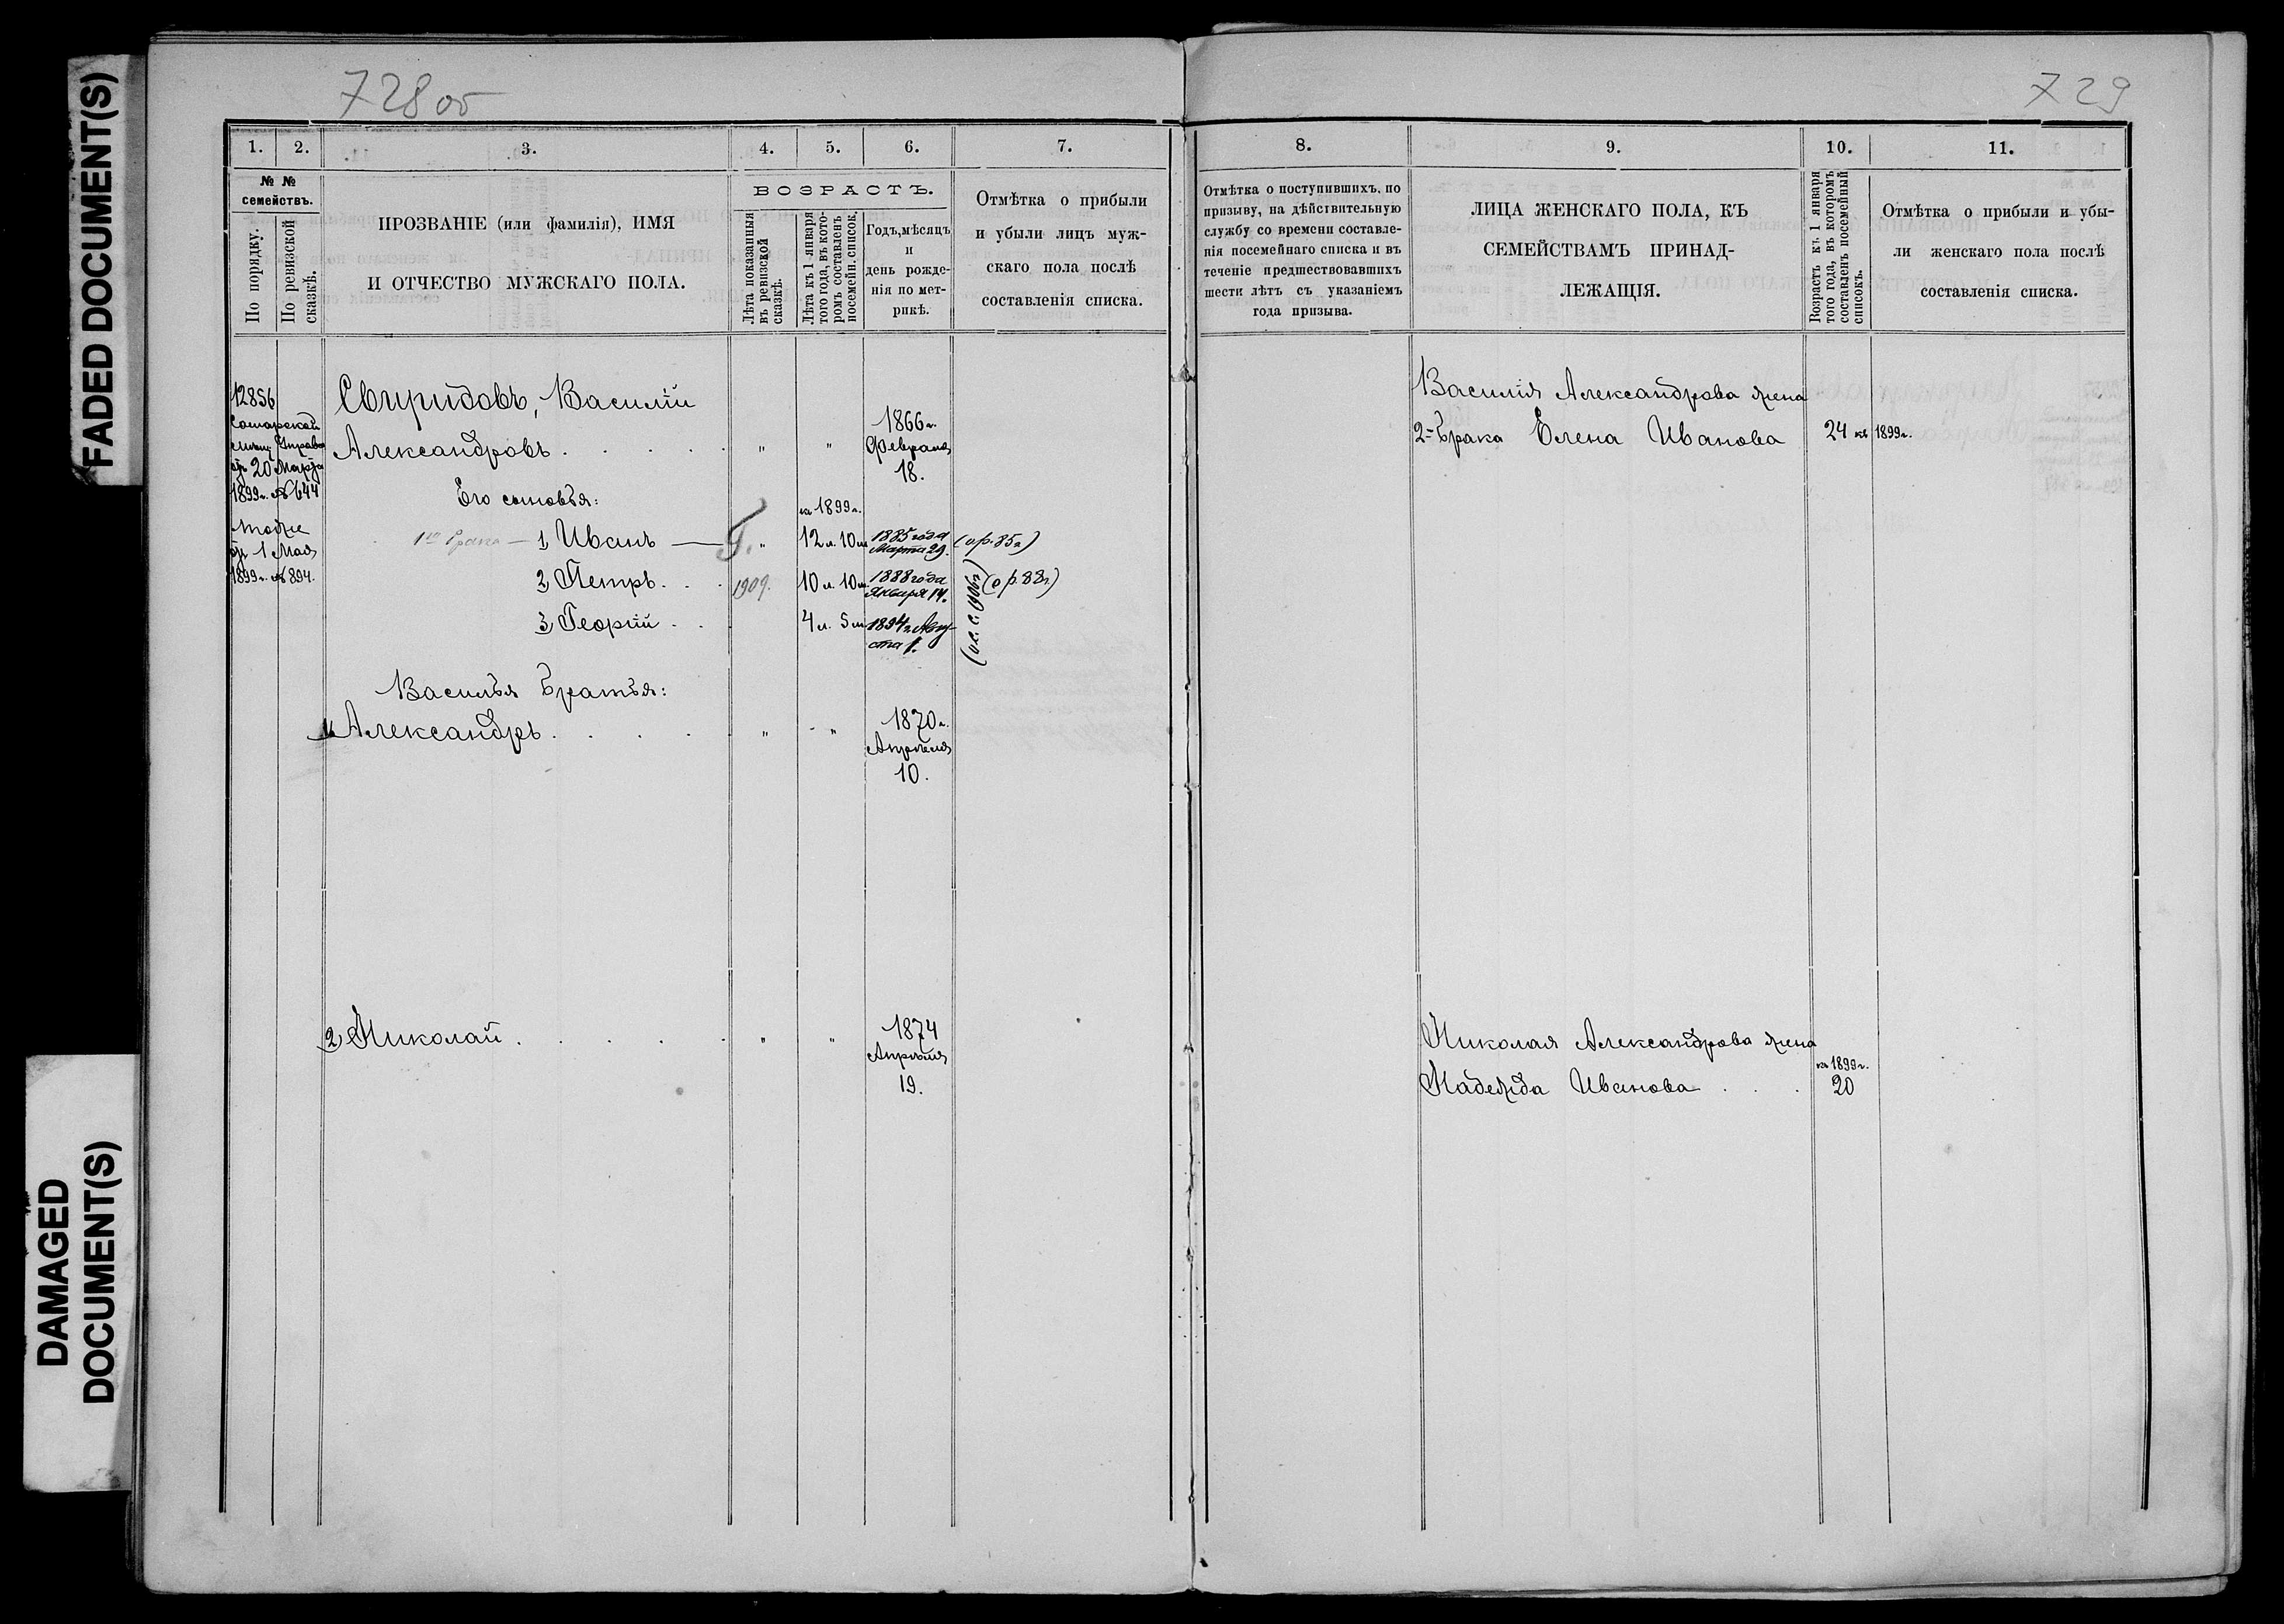 FADED DOCUMENT(S)
DAMAGED
DOCUMENT(S)
728 об
1.
2.
3.
4.
5.
6.
7.
№ №
семействъ.
По порядку.
По ревизской
сказкѣ.
ПРОЗВАНІЕ (или фамилія), ИМЯ
И ОТЧЕСТВО МУЖСКАГО ПОЛА.
ВОЗРАСТЪ.
Лѣта показанныя
въ ревизской
сказкѣ.
Лѣта къ 1 января
того года, въ кото-
ромъ составленъ
посемейн. список.
Годъ, мѣсяцъ
и
день рожде-
нія по мет-
рикѣ.
Отмѣтка о прибыли
и убыли лицъ муж-
скаго пола послѣ
составленія списка.
12856
Самарской
мѣщ Управы
отъ 20 Марта
1899 г. № 644
тоже
отъ 1 Мая
1899 г. № 894.
Свиридовъ, Василій
Александровъ . . . . . „ „
1866 г.
Февраля
18.
Его сыновья:
къ 1899 г.
1го брака — 1, Иванъ — „ 12 л. 10 м 1885 года
Марта 29. (о р. 85 г)
2, Петръ . . . 1909. 10 л. 10 м. 1888 года
Января 14. (о р. 88 г)
3, Георгій . . . 4 л. 5 м 1894 г. Авгу-
ста 1.
Василья братья:
1, Александръ . . . . . „ „
1870 г.
Апрѣля
10.
2, Николай . . . . . „ „
1874
Апрѣля
19.
729
8.
9.
10.
11.
Отмѣтка о поступившихъ, по
призыву, на дѣйствительную
службу со времени составле-
нія посемейнаго списка и въ
теченіе предшествовавшихъ
шести лѣтъ съ указаніемъ
года призыва.
ЛИЦА ЖЕНСКАГО ПОЛА, КЪ
СЕМЕЙСТВАМЪ ПРИНАД-
ЛЕЖАЩІЯ.
Возрастъ къ 1 января
того года, въ которомъ
составленъ посемейный
списокъ.
Отмѣтка о прибыли и убы-
ли женскаго пола послѣ
составленія списка.
Василія Александрова жена
2го брака Елена Иванова 24 къ 1899 г.
Николая Александрова жена
къ 1899 г.
Надежда Иванова . . . 20